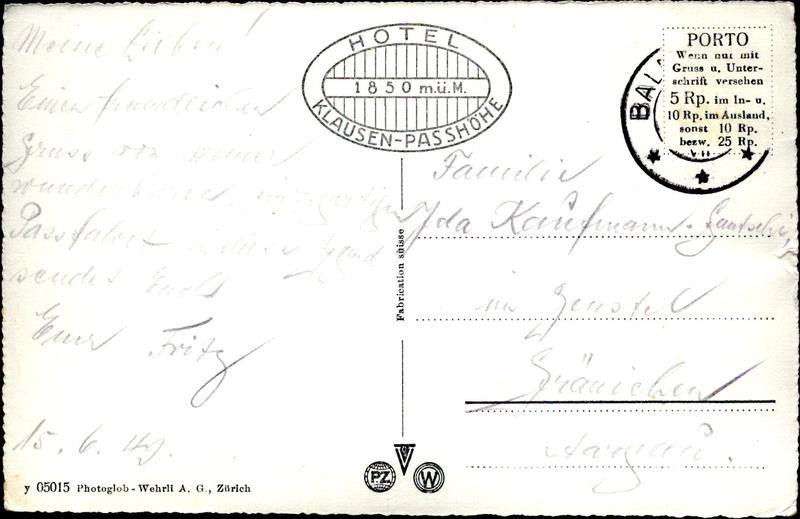 Meine Lieben!
Einen freundlichen
Gruss von meiner
wunderbaren,
Passfahrt in diese
sendet Euch
Euer Fritz
15. 6. 49.
HOTEL
1850 m.ü.M.
KLAUSEN-PASSHÖHE
PORTO
Wenn nur mit
Gruss u. Unter-
schrift versehen
5 Rp. im In- u.
10 Rp. im Ausland,
sonst 10 Rp.
bezw. 25 Rp.
VII
Familie
Ida Kaufmann-
im
Gränichen
Aargau.
Fabrication suisse
PZ
W
y 05015 Photoglob-Wehrli A. G., Zürich